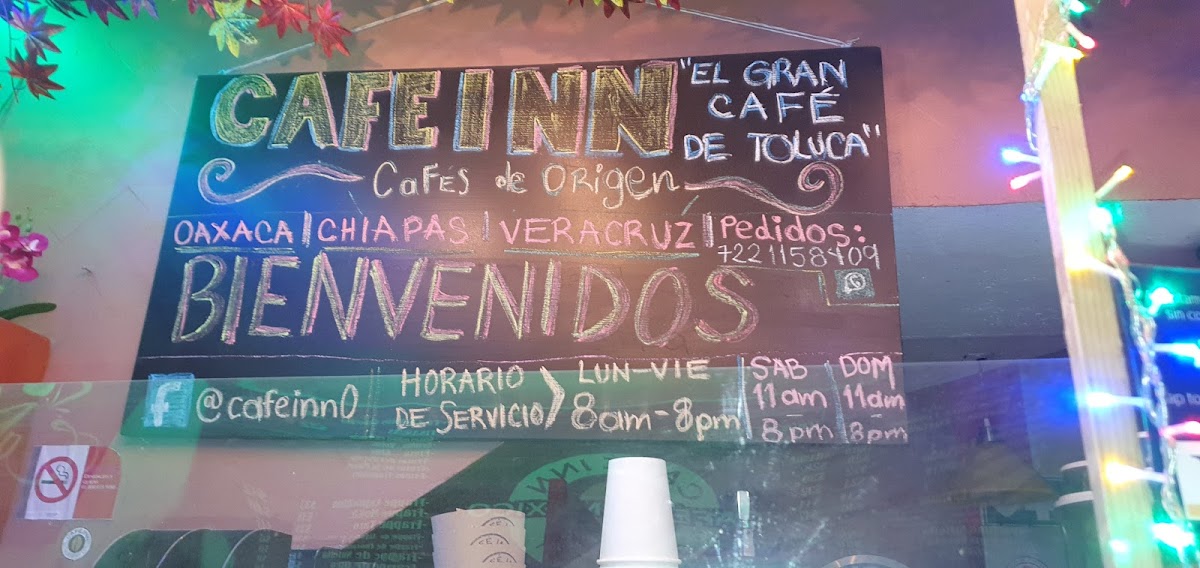 CAFE INN
"EL GRAN
CAFÉ
DE TOLUCA"
CAFES de ORIGEN
OAXACA | CHIAPAS | VERACRUZ | Pedidos:
7221158409
BIENVENIDOS
@cafeinn0
HORARIO
DE SERVICIO
LUN-VIE
8am-8pm
SAB
11am
-
8pm
DOM
11am
-
8pm